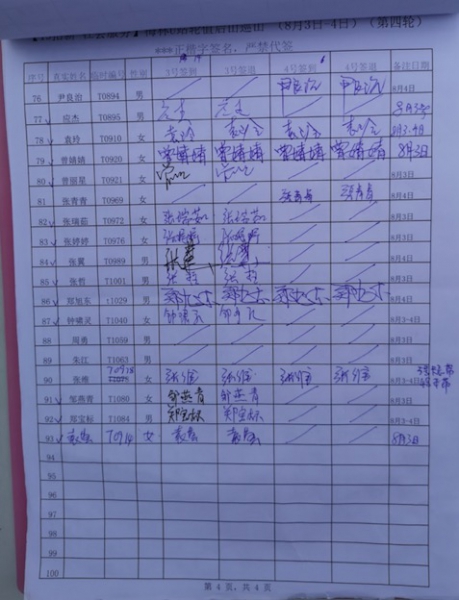 (8月3日-4日) (第四轮)
正楷字签名，严禁代签
序号 真实姓名 临时编号 性别 3号签到 3号签退 4号签到 4号签退 备注日期
76 尹良治 T0894 男 尹良治 尹良治 8月4日
77 应杰 T0895 男
78 袁玲 T0910 女 袁玲 袁玲 袁玲 袁玲
79 曾婧婧 T0920 女 曾婧婧 曾婧婧 曾婧婧 曾婧婧 8月3日
80 曾丽星 T0921 女 8月3日
81 张青青 T0969 女 张青青 张青青 8月4日
82 张瑞茹 T0972 女 张瑞茹 张瑞茹 8月3日
83 张婷婷 T0976 女 张婷婷 张婷婷 8月3日
84 张翼 T0989 男 张翼 8月3日
85 张哲 T1001 男 张哲 张哲 8月3日
86 郑旭东 t1029 男 郑旭东 郑旭东 郑旭东 郑旭东 8月4日
87 钟啸灵 T1040 女 8月3-4日
88 周勇 T1059 男 8月3日
89 朱江 T1063 男 8月3日
90 张维 T0978 女 张维 张维 张维 张维 8月3-4日
91 邹燕青 T1080 女 邹燕青 邹燕青 8月3-4日
92 郑宝标 T1084 男 郑宝标 郑宝标 8月3日
93 T0914 女 8月3日
94
95
96
97
98
99
100
第 4 页，共 4 页